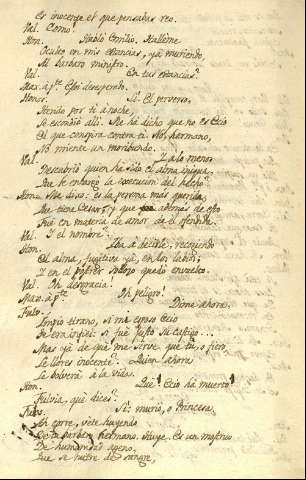 Es inocente el que pensabas reo.
Val. Como?
Hon. Habló Emilio. Halléme
Oculto en mis estancias, ya muriendo,
Al barbaro ministro.
Val. En tus estancias?
Max. ap.te Estoi desesperado.
Honor. Si. El perverso,
Herido por ti anoche,
Se escondió allí. Me ha dicho que no es Ecio
El que conspira contra ti. No, hermano,
No miente un moribundo.
Val. Y alo menos
Descubrió quien ha sido el alma iniqua,
Que le encargó la execucion del hecho?
Hon. Me dixo: es la persona más querida
Que tiene Cesar, y que además de esto
Fue en materia de amor de el ofendido.
Val. Y el nombre?
Hon. Iba a decirle, recogiendo
El alma, fugitiva ya, en los labios;
Y en el postrer solozo quedó envuelto.
Val. Oh desgracia!
Max. a p.te Oh peligro!
Fulv. Dime ahora,
Impio tirano, si mi esposo Ecio
Era infiel: si fue justo su castigo...
Mas ya de qué me sirve que tu, o fiero,
Le llores inocente? Quien ahora
Le bolverá a la vida.
Hon. Que! Ecio há muerto?
Fulvia, qué dices?
Fulv. Si: murio, o Princesa.
Ah corre, vete huyendo
De tu barbaro hermano. Huye. Es un monstruo
De humanidad ageno,
Que se nutre de sangre,